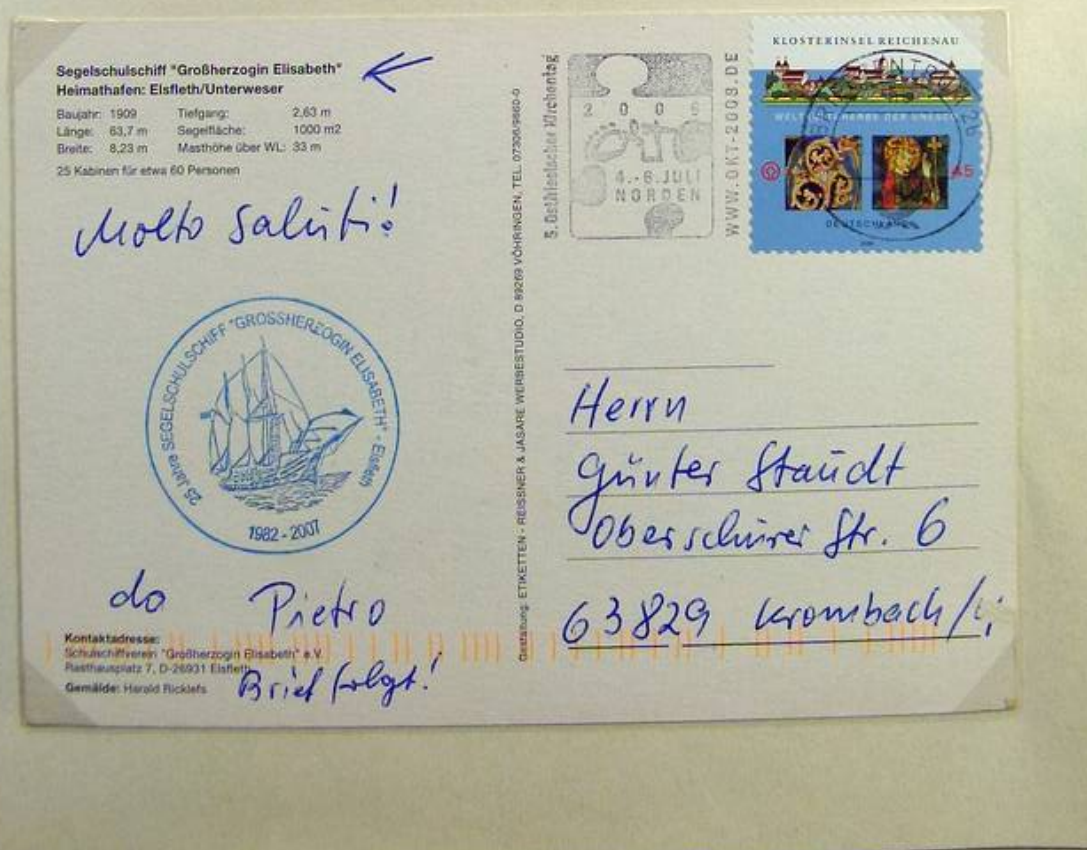 Segelschulschiff "Großherzogin Elisabeth"
Heimathafen: Elsfleth/Unterweser
Baujahr: 1909 Tiefgang: 2,63 m
Länge: 63,7 m Segelfläche: 1000 m2
Breite: 8,23 m Masthöhe über WL: 33 m
25 Kabinen für etwa 60 Personen
Molto Saluti!
25 Jahre SEGELSCHULSCHIFF "GROSSHERZOGIN ELISABETH" - Elsfleth
1982 - 2007
da Pietro
Kontaktadresse:
Schulschiffverein "Großherzogin Elisabeth" e.V.
Rathausplatz 7, D-26931 Elsfleth
Gemälde: Harald Ricklefs
Brief folgt!
Gestaltung: ETIKETTEN - REISSNER & JASARE WERBESTUDIO, D 89269 VÖHRINGEN, TEL. 07306/9660-0
5. Ostfriesischer Kirchentag
2008
4.-6. JULI
NORDEN
WWW.OKT-2008.DE
KLOSTERINSEL REICHENAU
WELTKULTURERBE DER UNESCO
45
DEUTSCHLAND
Herrn
Günter Staudt
Oberschurer Str. 6
63829 Krombach